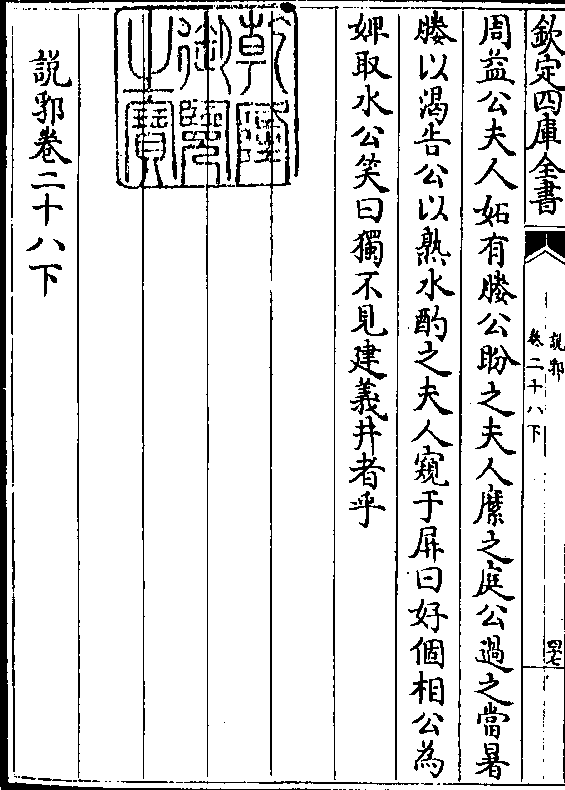 欽定四庫全書
說郛
卷二十八下
四十七
周益公夫人妬有媵公盼之夫人縻之庭公過之當暑
媵以渴告公以熟水酌之夫人窺于屏曰好個相公為
婢取水公笑曰獨不見建義井者乎
說郛卷二十八下
乾隆
御覽
之寶